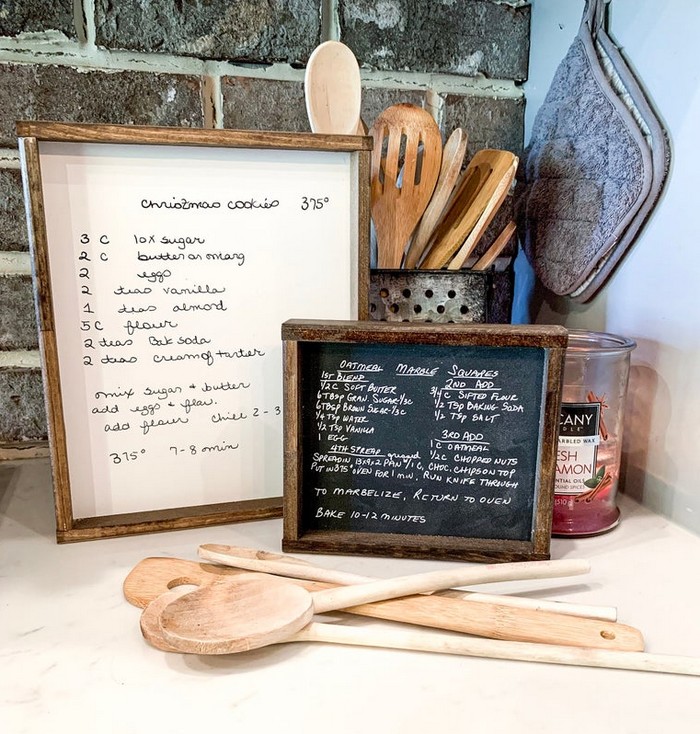 christmas cookies 375°
3 C 10x sugar
2 C butter or marg
2 eggs
2 teas vanilla
1 teas almond
5 C flour
2 teas Bak soda
2 teas cream of tarter
mix sugar & butter
add eggs & flav.
add flour chill 2-3
375° 7-8 min
OATMEAL MARBLE SQUARES
1ST BLEND
1/2 C SOFT BUTTER
6 TBSP GRAN. SUGAR-1/3C
6 TBSP BROWN SUGAR-1/3C
1/4 TSP WATER
1/2 TSP VANILLA
1 EGG
2ND ADD
3/4 C SIFTED FLOUR
1/2 TSP BAKING SODA
1/2 TSP SALT
3RD ADD
1 C OATMEAL
1/2 C CHOPPED NUTS
4TH SPREAD greased
SPREAD IN 13x9x2 PAN w/1 C. CHOC. CHIPS ON TOP
PUT IN 375° OVEN FOR 1 MIN, RUN KNIFE THROUGH
TO MARBELIZE, RETURN TO OVEN
BAKE 10-12 MINUTES
CANY
DLE
ARBLED WAX
ESH
AMON
ENTIAL OILS